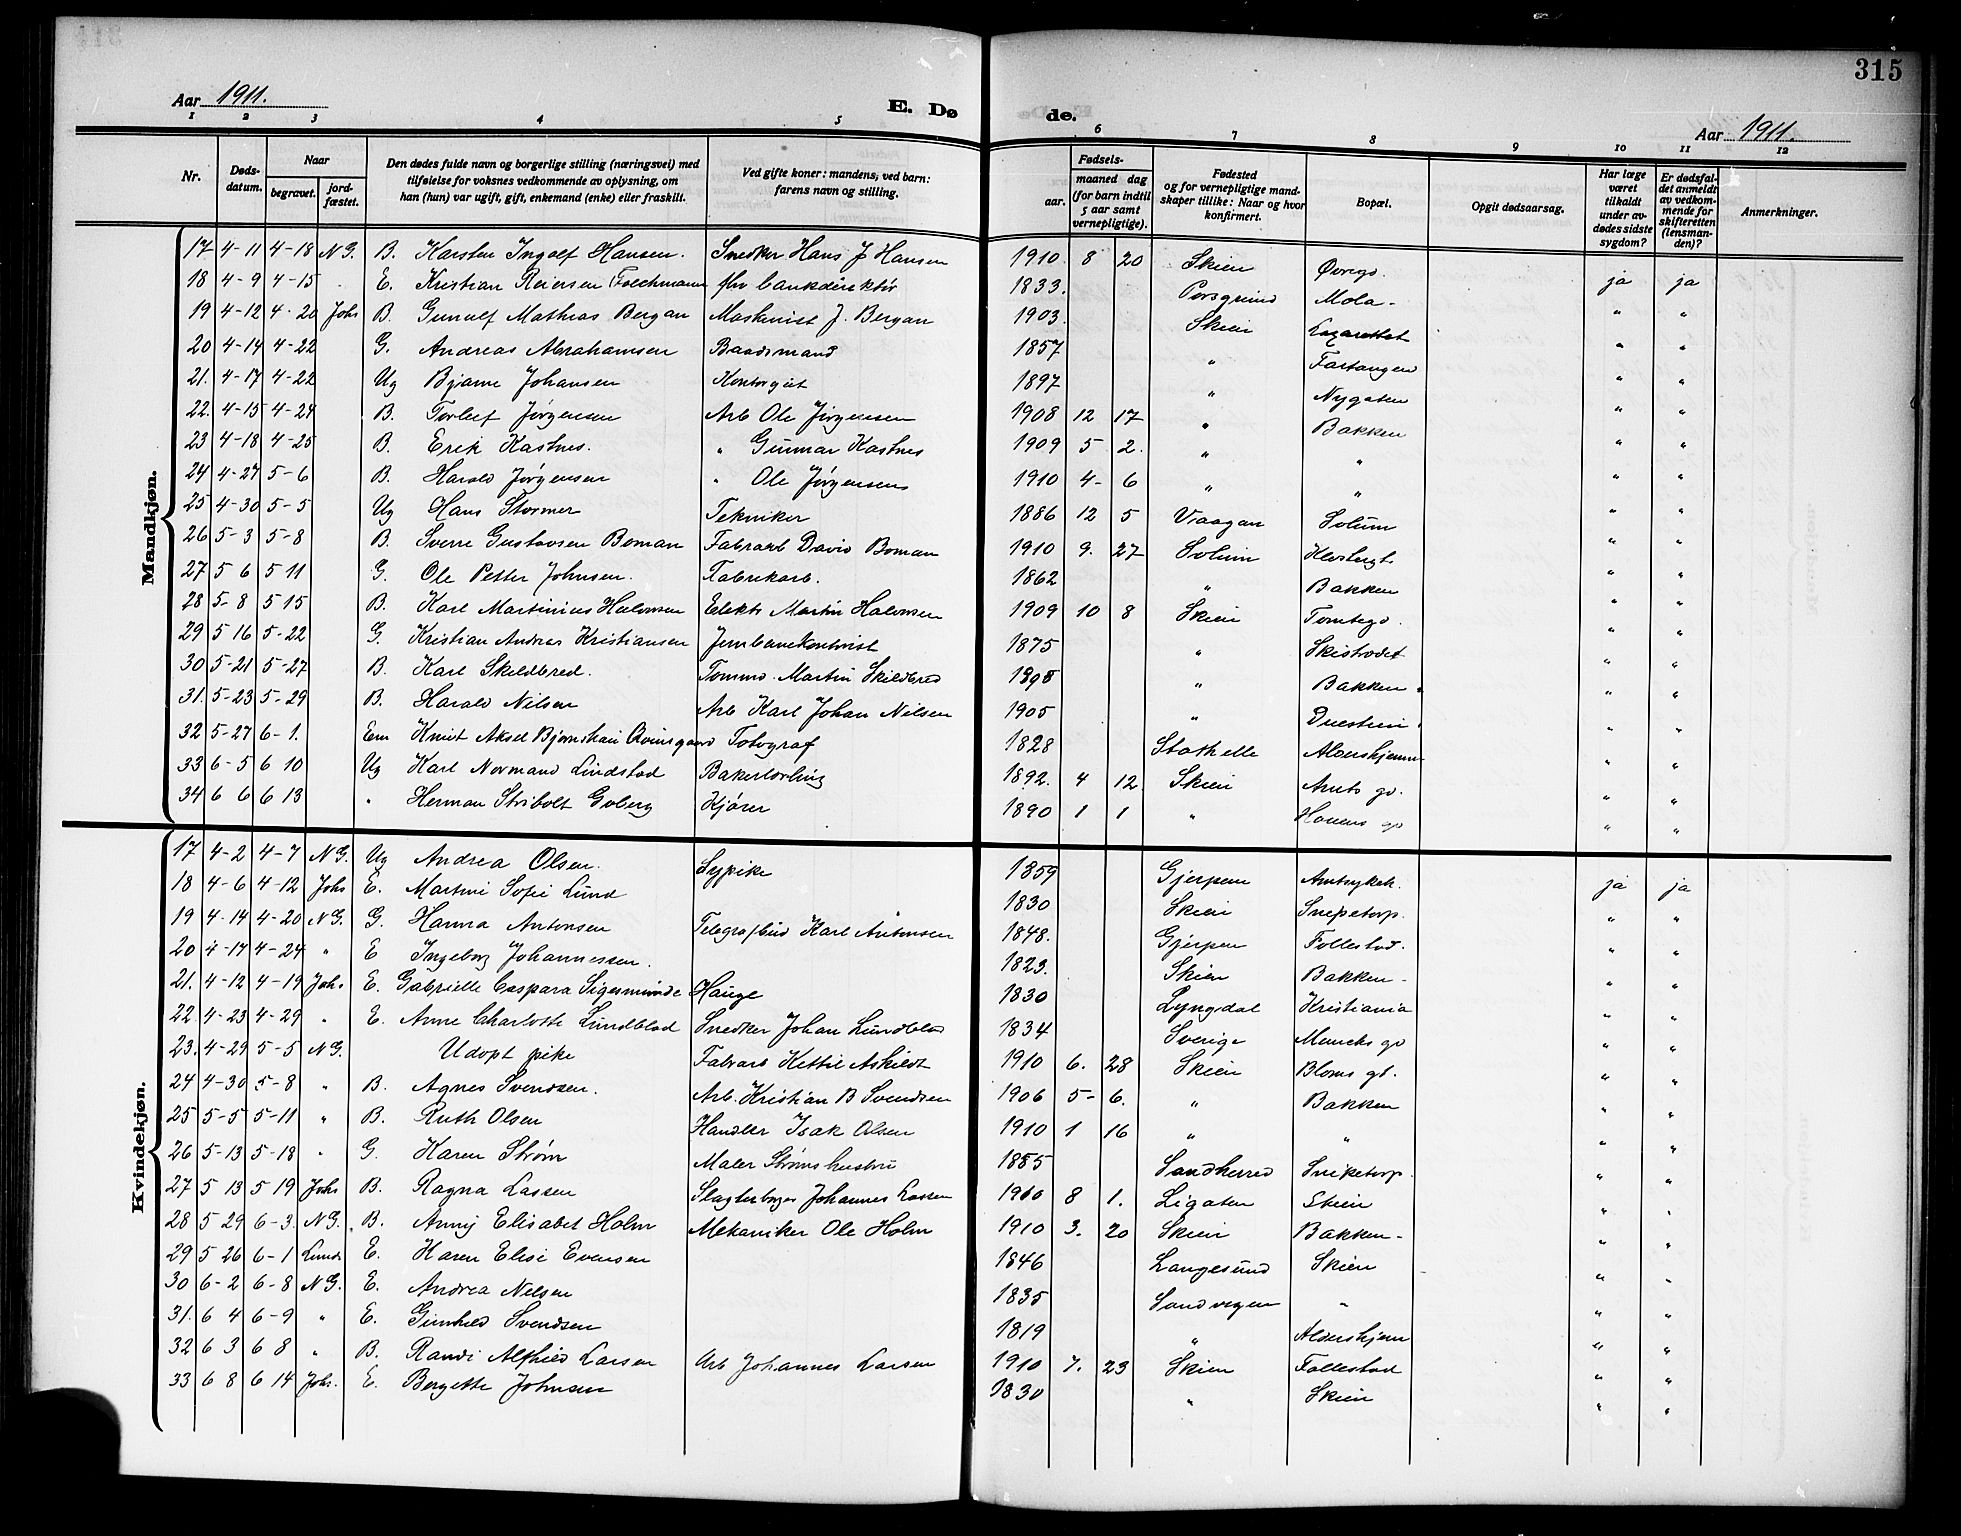 315
Aar 1911.
E. Dø
de.
Aar 1911.
1 2 3 4 5 6 7 8 9 10 11 12
Nr.
Døds-
datum.
Naar
begravet.
jord-
fæstet.
Den dødes fulde navn og borgerlige stilling (næringsvei) med
tilføielse for voksnes vedkommende av oplysning, om
han (hun) var ugift, gift, enkemand (enke) eller fraskilt.
Ved gifte koner: mandens; ved barn:
farens navn og stilling.
Fødsels-
aar.
maaned dag
(for barn indtil
5 aar samt
vernepligtige).
Fødested
og for vernepligtige mand-
skaper tillike: Naar og hvor
konfirmert.
Bopæl.
Opgit dødsaarsag.
Har læge
været
tilkaldt
under av-
dødes sidste
sygdom?
Er dødsfal-
det anmeldt
av vedkom-
mende for
skifteretten
(lensman-
den)?
Anmerkninger.
Mandkjøn.
17 4-11 4-18 N G. B. Karsten Ingolf Hansen. Snedker Hans J Hansen 1910. 8 20 Skien Øvregd. ja ja
18 4-9 4-15 E. Kristian Reiersen Foechmann fhv bankdirektør 1833. Porsgrund Mola - " "
19 4-12 4-20 Johs B. Gunulf Mathias Bergan Maskinist J. Bergan 1903. Skien Lazarettet " "
20 4-14 4-22 G. Andreas Abrahamsen Baadsmand 1857 " Fartangen " "
21. 4-17 4-22 Ug Bjarne Johansen Kontorgut 1897 " Nygaten " "
22. 4-15 4-24 B. Torleif Jørgensen Arb Ole Jørgensen 1908 12 17 " Bakken " "
23 4-18 4-25 B. Erik Kastnes. " Gunnar Kastnes 1909 5 2. " " " "
24 4-27 5-6 B. Harald Jørgensen " Ole Jørgensen 1910 4- 6 " " " "
25 4-30 5-5 Ug Hans Stormer Tekniker 1886 12 5 Vaagan Solum " "
26 5-3 5-8 B. Sverre Gustavsen Boman Fabrarb David Boman 1910 9. 27 Solum Klostergt " "
27 5 6 5 11 G. Ole Petter Johnsen. Fabrikarb. 1862 " Bakken " "
28 5-8 5 15 B. Karl Martinius Halvorsen Elektr Martin Halvorsen 1909 10 8 Skien Tomtegd. " "
29 5 16 5-22 G. Kristian Andreas Kristiansen Jernbanekontorist 1875 " Skistredet " "
30 5-21 5-27 B. Karl Skilbred. Tømmd. Martin Skilbred " Bakken " "
31. 5-23 5-29 B. Harald Nilsen Arb Karl Johan Nilsen 1905 " Duestien " "
32 5-27 6-1. Em Knut Aksel Fotograf 1828 Stathelle Aldershjemm " "
33 6-5 6 10 Ug Karl Normand Lindstad Bakerlærling 1892. 4 12 Skien Amts gd. " "
34 6 6 6 13 " Herman Stribolt Goberg Kjører 1890 1 1 " gd " "
Kvindekjøn.
17 4-2 4-7 N G. Ug Andrea Olsen. Sypike 1859 Gjerpen Amtsykeh. ja ja
18 4-6 4-12 Johs E. Martine Sofie Lund 1830 Skien Snipetorp. " "
19 4-14 4-20 N G. G. Hanna Antonsen Telegrafbud Karl Antonsen 1848. Gjerpen Follestad. " "
20 4-17 4-24 " E Ingeborg Johannessen. 1823. Skien Bakken - " "
21. 4-12 4-19 Joh. E. Gabrielle Caspara Sigesmunde Hauge 1830 Lyngdal Kristiania " "
22 4-23 4-29 " E. Anne Charlotte Lundblad Snedker Johan Lundblad 1834 Sverige Muncks gd " "
23. 4-29 5-5 N G. Udøpt pike Fabrarb Kettil Askildt 1910 6. 28 Skien Bloms gt. " "
24 4-30 5-8 " B. Agnes Svendsen. Arb. Kristian B Svendsen 1906 5- 6. " Bakken " "
25 5-5 5-11 " B. Ruth Olsen Handler Isak Olsen 1910 1 16 " " " "
26 5-13 5-18 " G. Karen Strøm Maler Strøms hustru 1885 Sandherred Sniketorp. " "
27 5 13 5 19 Johs B. Ragna Lassen Johannes Lassen 1910 8 1. Ligaten Skien " "
28 5 29 6-3. N G. B. Anny Elisabet Holm Mekaniker Ole Holm 1910 3. 20 Skien Bakken - " "
29 5 26 6-1 Lunds E. Karen Elise Evensen 1846 Langesund Skien " "
30 6-2 6-8 N G. E. Andrea Nilsen 1835 Sandvegen " " "
31. 6 4 6-9 " E. Gunhild Svendsen 1819 " Aldershjem " "
32 6 3 6 8 " B. Randi Alfhild Larsen Arb Johannes Larsen 1910 7. 23 Skien Follestad " "
33 6 8 6 14 Joh. E. Bergette Johnsen 1830 " Skien " "